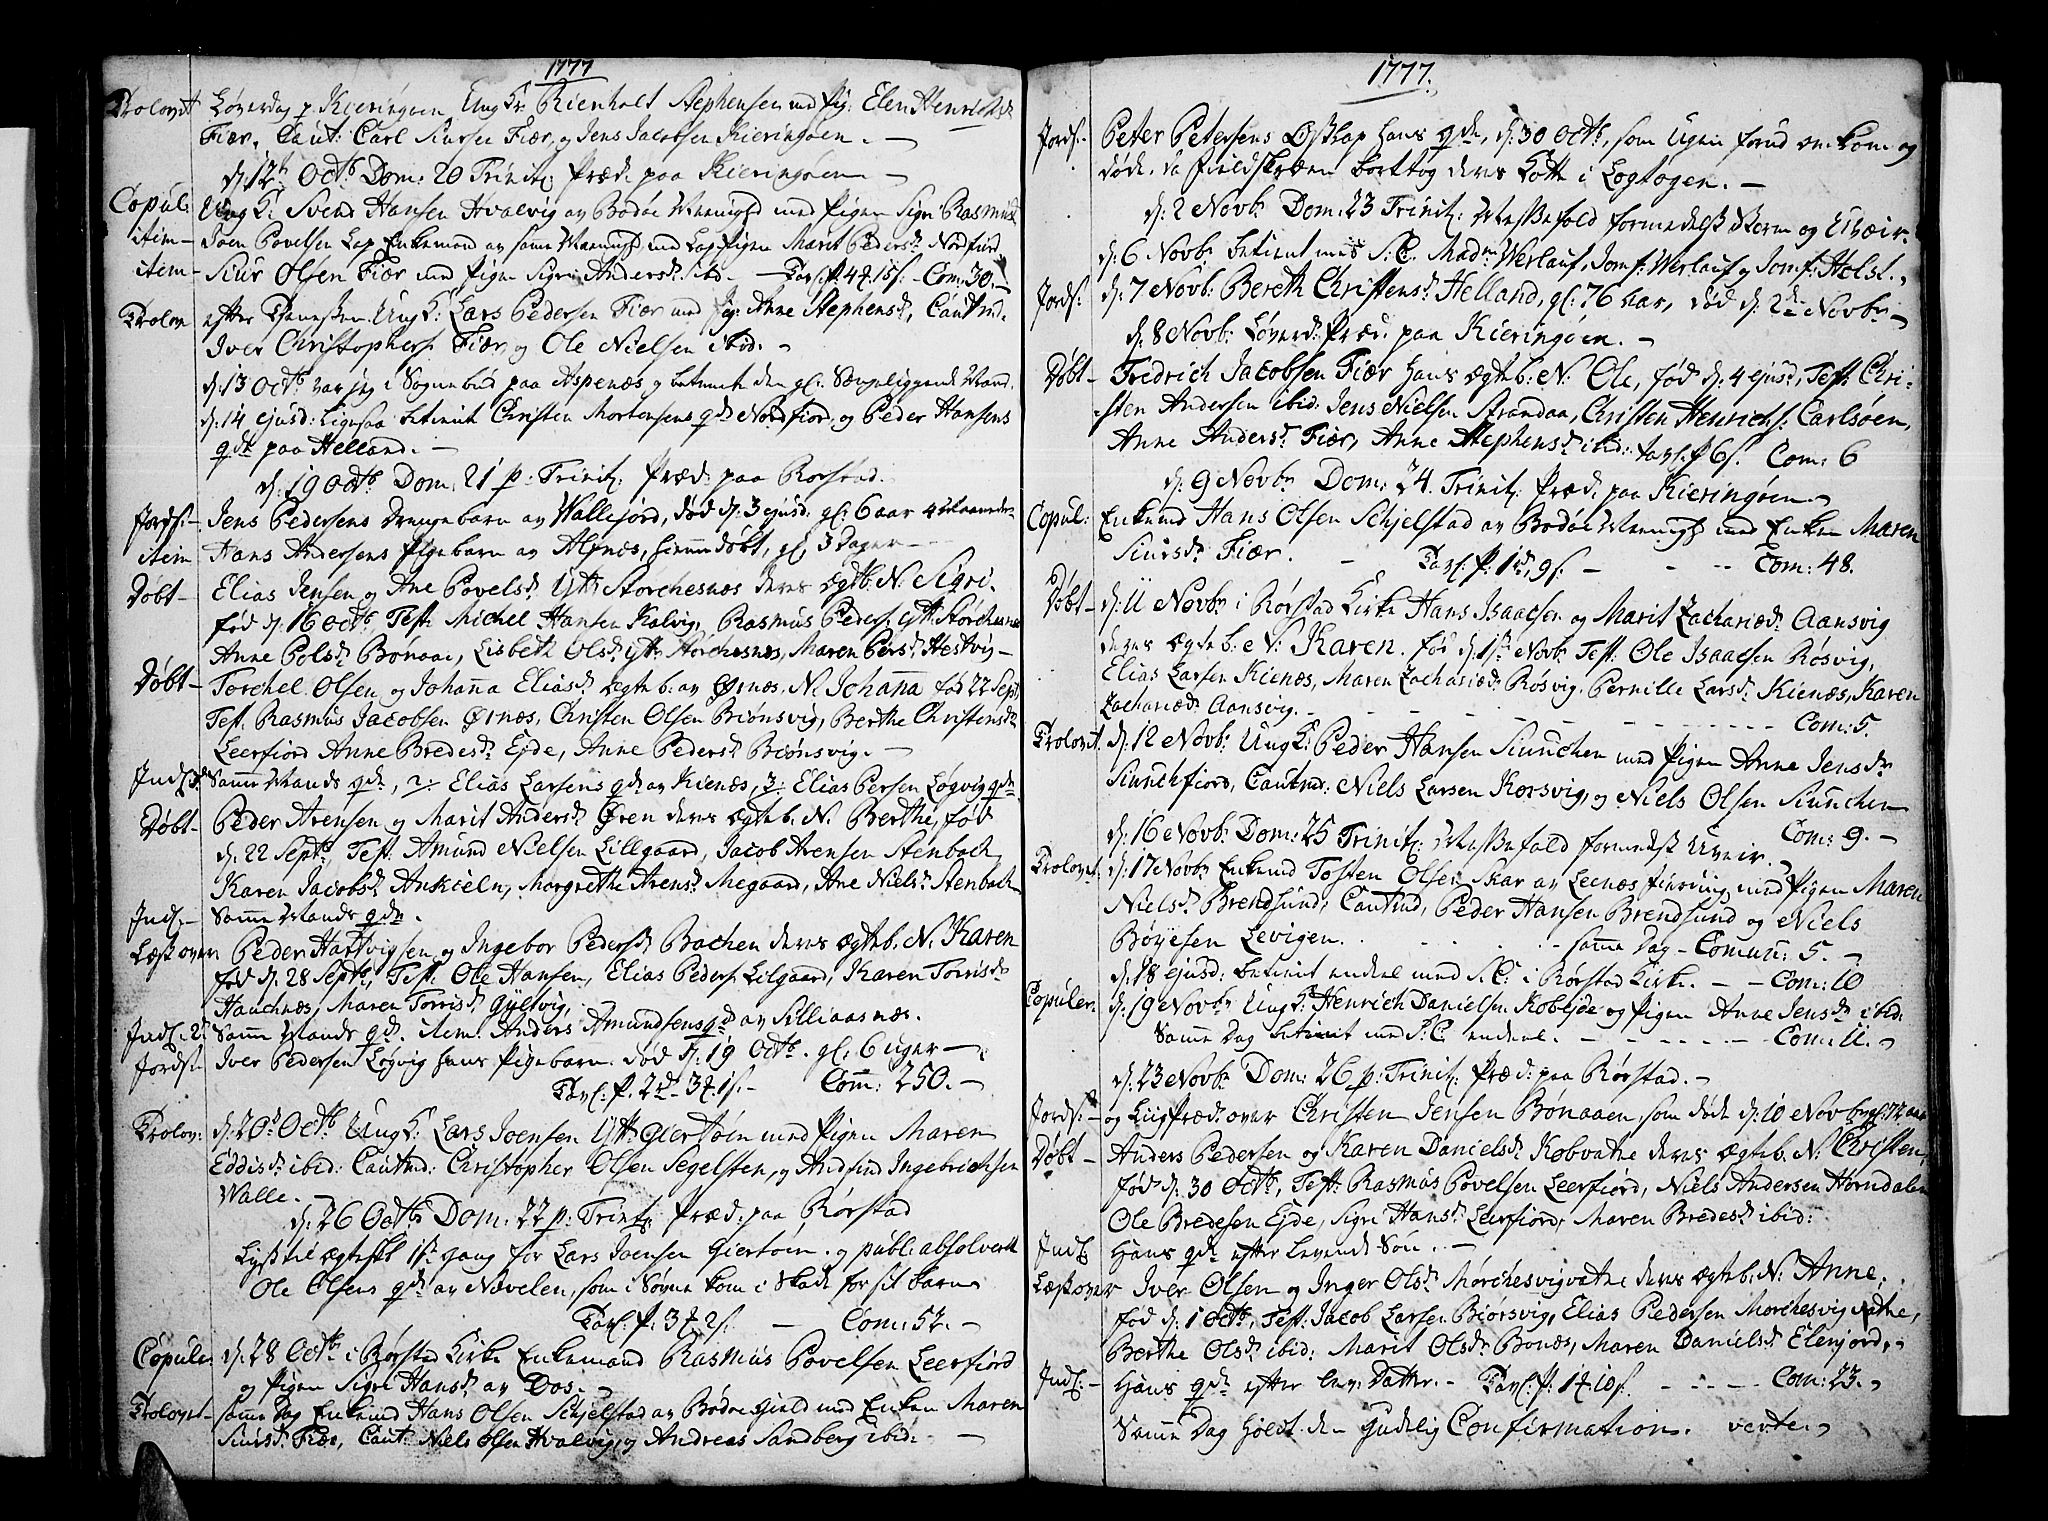 1777
Trolovet Løverdag p. Kieringøen Ung K: Rienholt Stephensen med Pig: Elen Henrichsd
Fiær, Caut: Carl Siursen Fiær, og Jens Jacobsen Kieringøen. —
d: 12te Octb Dom: 20 Trinit: Præd: paa Kieringøen —
Copul: Ung K: Svend Hansen Hvalvig av Bodøe Menighd med Pigen Sigri Rasmusd
item — Joen Povelsen Lap Enkemand av samme Menighd med Lap Pigen Marit Pedersd Nordfiord
item — Siur Olsen Fiær med Pigen Sigri Andersd ibd — Tavl: P. 4 # 15 s. — Com: 30. —
Trolov efter Tienesten Ung K: Lars Pedersen Fiær med Pig: Anne Stephensd, Cautind.
Iver Christophers: Fiær, og Ole Nielsen ibid. —
d: 13 Octb var jeg i Sognebud paa Aspenæs, og betiente den gl: Sengeliggende Mand.
d: 14 ejusd: Ligesaa betient Christen Mortensens qde Nordfiord, og Peder Hansens
qde paa Helland. —
d: 19 Octb Dom: 21 p: Trinit: Præd: paa Rørstad.
Jords: — Jens Pedersens Drengebarn av Wallejord, død d: 3 ejusd: gl: 6 aar
item Hans Andersens Pigebarn av Alfnæs, hiemmedøbt, gl: 3 Dager —
Døbt — Elias Jensen og Ane Povelsd Ytt: Storchesnæs deres Ægtb: N: Sigri.
fød d: 16 Octb, Test: Michel Hansen Kalvig, Rasmus Peders: Ytt: Storchesnæs
Anne Polsd Bønaae, Lisbeth Olsd Ytt: Storchesnæs, Maren Persd Hestvig —
Døbt — Torchel Olsen og Johanna Eliasd Ægteb: av Ørnæs, N: Johanna fød 22 Sept
Test: Rasmus Jacobsen Ørnæs, Christen Olsen Biønsvig, Berthe Christensd
Leerfiord Anne Bredesd Ejde, Anne Pedersd Biønsvig. —
Indl: 3. Samme Mands qde, 2: Elias Larsens qde av Kienæs, 3: Elias Persen Løgvig qde
Døbt — Peder Arensen og Marit Andersd Øren deres Ægteb: N: Berthe, fød
d: 22 Septb, Test: Amund Nielsen Lillgaard, Jacob Arensen Stenbach
Karen Jacobsd Ankieln, Margrethe Arensd Megaard, Ane Nielsd Stenbach
Indl: — Samme Mands qde.
Læst over Peder Hartvigsen og Ingebor Pedersd Bachen deres Ægteb: N: Karen
fød d: 28 Septb, Test: Ole Hansen, Elias Peders: Lilgaard, Karen Torrisd
Hauchnæs, Maren Torrisd Gyltvig,
Indl: 2. Samme Mands qde. item: Anders Amundsens qde av Silliaasnæs.
Jords: — Iver Pedersen Løgvig hans Pigebarn. død d: 19 Octb. gl: 6 uger —
Tavl: P. 2 rd 3 # 1 s. — Com: 250. —
Trolov: d: 20de Octb Ung K: Lars Joensen Ytt: Giertøen med Pigen Maren
Eddisd ibid: Cautind: Christopher Olsen Segelsten, og Andfind Ingebrichtsen
Walle. —
d: 26 Octb Dom: 22 p: Trinit: Præd: paa Rørstad
Lyst til Ægtesk: 1ste gang for Lars Joensen Giertøen. og publ: absolverte
Ole Olsens qde av Nævelen, som i Søvne kom i Skade for sit barn
Tavl: P. 3 # 2 s. — Com: 52. —
Copuler d: 28 Octb i Rørstad Kirke Enkemand Rasmus Povelsen Leerfiord
og Pigen Sigri Hansd av Dos. —
Trolovet — samme Dag Enkemd Hans Olsen Schjelstad av Bodøe Gield med Enken Maren
Siursd Fiær, Caut: Niels Olsen Hvalvig, og Andreas Sandberg ibid. —
1777.
Jords: — Peter Petersens Østlap hans qde, d: 30 Octb, som Ugen forud omkom og
døde, da Fieldskreen borttog deres Kotte i Logtogen. —
d: 2 Novb. Dom: 23 Trinit: Messefald formedelst Storm og Uhveir.
d: 6 Novb: betient med S: C. Madm Werlauf, Jomf: Werlauf og Jomf: Holst.
Jords: d: 7 Novb: Bereth Christensd Helland, gl: 76 aar, død d: 2de Novbr —
d: 8 Novb: Løverd: Præd: paa Kieringøen. —
Døbt — Fredrich Jacobsen Fiær hans Ægteb: N: Ole, fød d: 4 ejusd, Test: Chri-
sten Andersen ibid: Jens Nielsen Strandaa, Christen Henrichs: Carlsøen,
Anne Andersd Fiær, Anne Stephensd ibid: Tavl: P 6 s. Com: 6
d: 9 Novbr Dom: 24. Trinit: Præd: paa Kieringøen —
Copul: Enkemd Hans Olsen Schjelstad av Bodøe Menighd med Enken Maren
Siursd Fiær. — Tavl: P: 1 rd, 9 s. — Com: 48.
Døbt — d: 11 Novbr i Rørstad Kirke Hans Isaachsen og Marit Zachariæd Aansvig
deres Ægteb: N: Karen. fød d: 1ste Novb: Test: Ole Isaachsen Røsvig,
Elias Larsen Kienæs, Maren Zachariæd Røsvig, Pernille Larsd Kienæs, Karen
Zachariæd Aansvig. — Com: 5.
Trolovet. d: 12 Novb: Ung K: Peder Hansen Siunchen med Pigen Anne Jensd
Siunchfiord, Cautind: Niels Larsen Korsvig, og Niels Olsen Siunchen
Com: 9. —
d: 16 Novb: Dom: 25 Trinit: Messefald formedst Uveir.
Trolovet: d: 17 Novbr Enkemd Tosten Olsen Skar av Leenæs Fierring med Pigen Maren
Nielsd Brendsund, Cautind, Peder Hansen Brendsund og Niels
Bøyesen Levigen. — samme Dag — Comun: 5. —
d: 18 ejusd: betient endeel med S. C: i Rørstad Kirke. — Com: 10
Copuler d: 19 Novbr Ung K: Henrich Danielsn Kobejde og Pigen Anne Jensd ibid:
Samme Dag betient med S. C. endeel. — Com: 11.
d: 23 Novbr Dom: 26 p: Trinit: Præd: paa Rørstad. —
Jords: — og Liigpræd: over Christen Jensen Bønaaen, som døde d: 10 Novbr gl: 72 aar
Døbt — Anders Pedersen og Karen Danielsd Kobvatne deres Ægteb: N: Christen,
fød d: 30 Octb, Test: Rasmus Povelsen Leerfiord, Niels Andersen Horndalen
Ole Bredesen Ejde, Sigri Hansd Leerfiord, Maren Bredesd ibid:
Indl: Hans qde efter levende Søn. —
Læst over Iver Olsen og Inger Olsd Mørchesvigvatne deres Ægteb: N: Anne,
fød d: 1 Octb, Test: Jacob Larsen Biørsvig, Elias Pedersen Mørchesvigvatne,
Berthe Olsd ibid: Marit Olsd Bonæs, Maren Danielsd Elenjord. —
Indl: — Hans qde efter lev: Datter. — Tavl: P: 1 # 10 s. — Com: 23.
Samme Dag holdt den gudelig Confirmation. verte